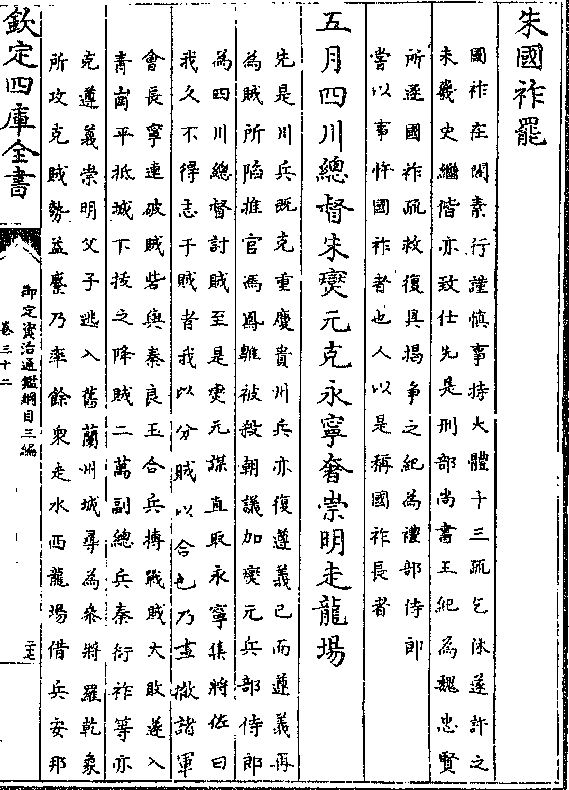 朱國祚罷
國祚在閣素行謹慎事持大體十三疏乞休遂許之
未幾史繼偕亦致仕先是刑部尚書王紀為魏忠賢
所逐國祚疏救復具揭爭之紀為禮部侍郎
嘗以事忤國祚者也人以是稱國祚長者
五月四川總督朱燮元克永寧奢崇明走龍場
先是川兵既克重慶貴州兵亦復遵義已而遵義再
為賊所陷推官馮鳳雛被殺朝議加燮元兵部侍郎
為四川總督討賊至是燮元謀直取永寧集將佐曰
我久不得志于賊者我以分賊以合也乃盡撤諸軍
會長寧連破賊砦與秦良玉合兵搏戰賊大敗遂入
青崗平抵城下拔之降賊二萬副總兵秦衍祚等亦
克遵義崇明父子逃入舊蘭州城尋為叅將羅乾象
所攻克賊勢益蹙乃率餘衆走水西龍場借兵安邦
欽定四庫全書
御定資治通鑑綱目三編
卷三十二
二七